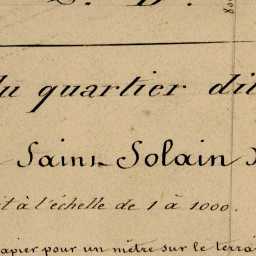 du quartier dit
Saint-Solain
it à l'échelle de 1 à 1000.
papier pour un mètre sur le terra